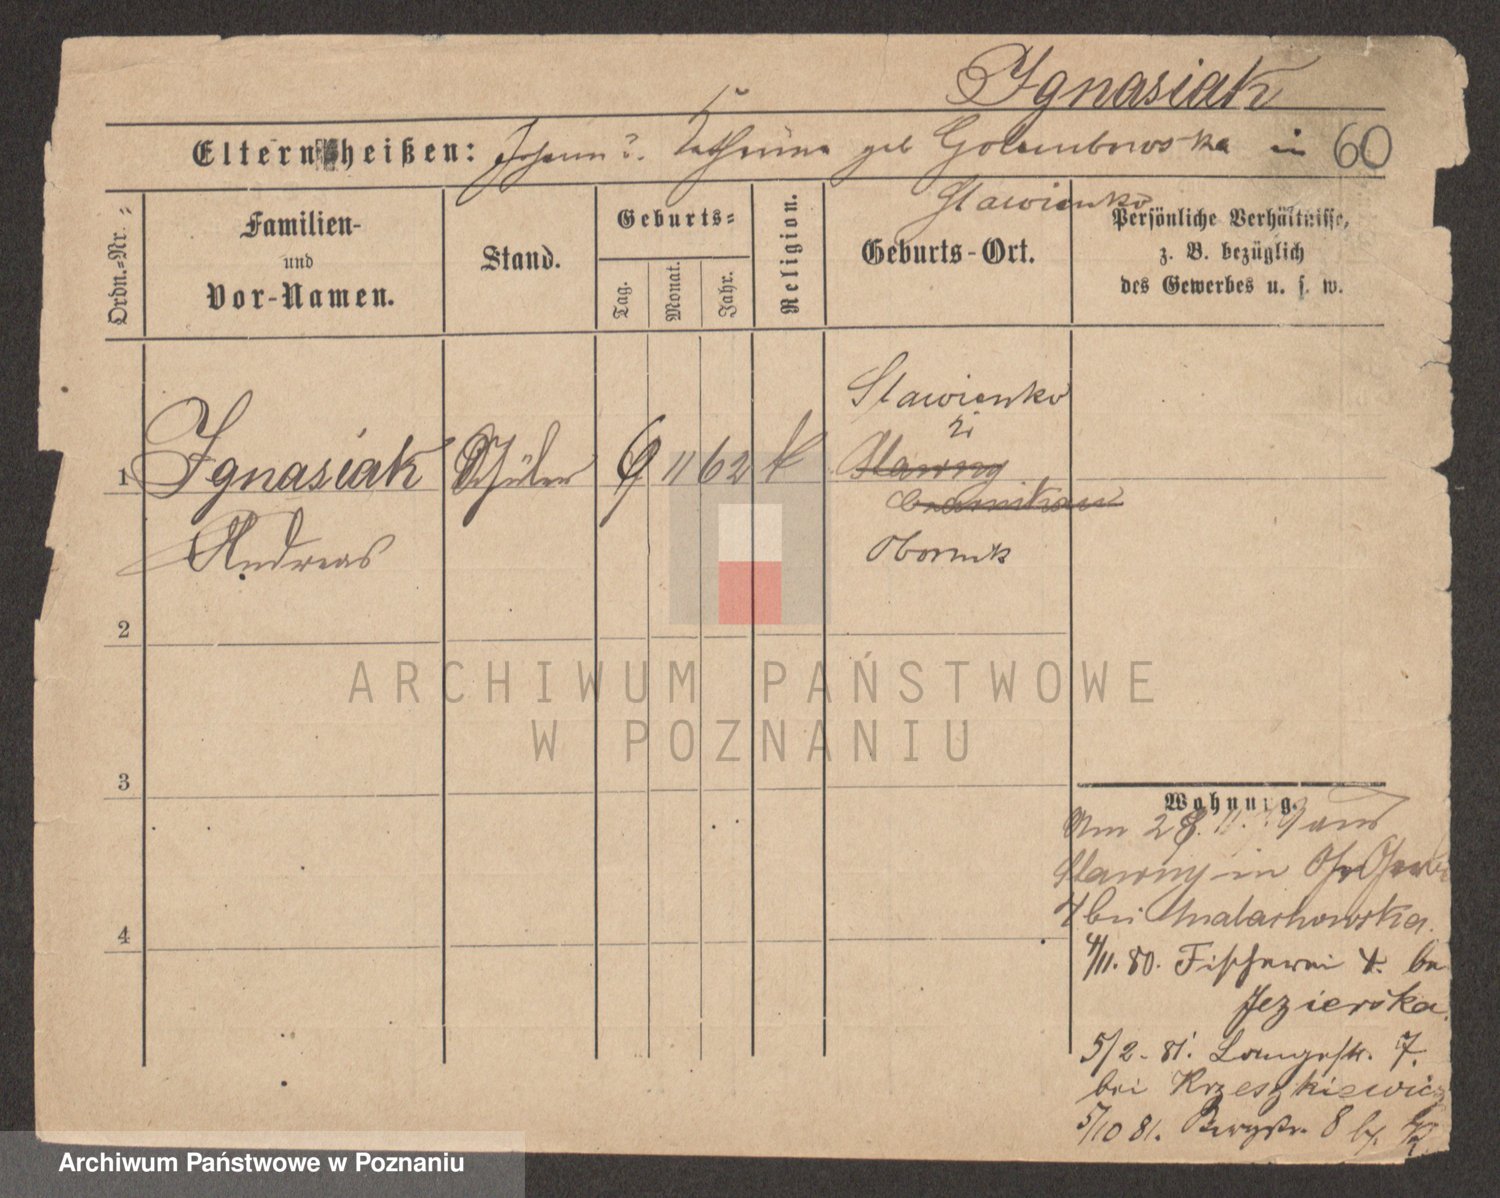 Ignasiak
Eltern heißen: Johann u. Katharina geb Golembowska in 60
Slawienko
Ordn.=Nr.
Familien-
und
Vor-Namen.
Stand.
Geburts=
Tag.
Monat.
Jahr.
Religion.
Geburts-Ort.
Persönliche Verhältnisse,
z. B. bezüglich
des Gewerbes u. s. w.
Slawienko
1 Ignasiak Schüler 11 62 k Slawny
Czarnikau
Andreas Obornik
2
3
4
Wohnung.
Am 28. 11. 79 aus
Slawny in
4 bei Malachowska.
4/11. 80. Fischerei 4. be
Jezierska.
5/2. 81. Langestr. 7.
bei Krzeszkiewicz
5/10 81. Bergstr. 8
ARCHIWUM PAŃSTWOWE
W POZNANIU
Archiwum Państwowe w Poznaniu